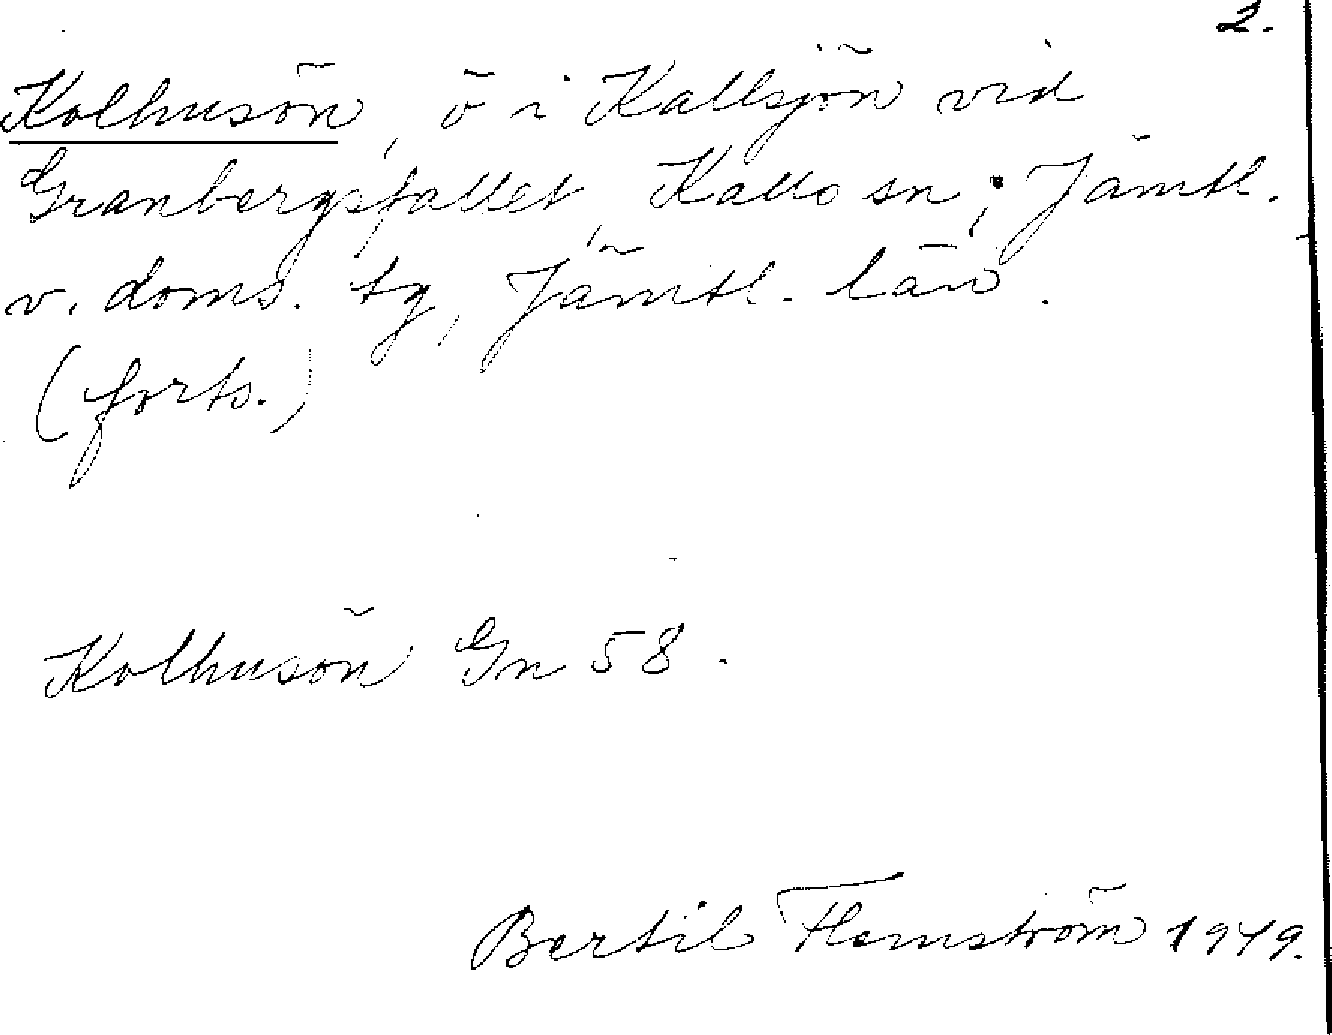 2.
Kolhusön, ö i Kallsjön vid
Granbergsfallet, Kalls sn, Jämtl.
v. doms. tg, Jämtl. län.
(forts.)
Kolhusön Gn 58.
Bertil Flemström 1949.